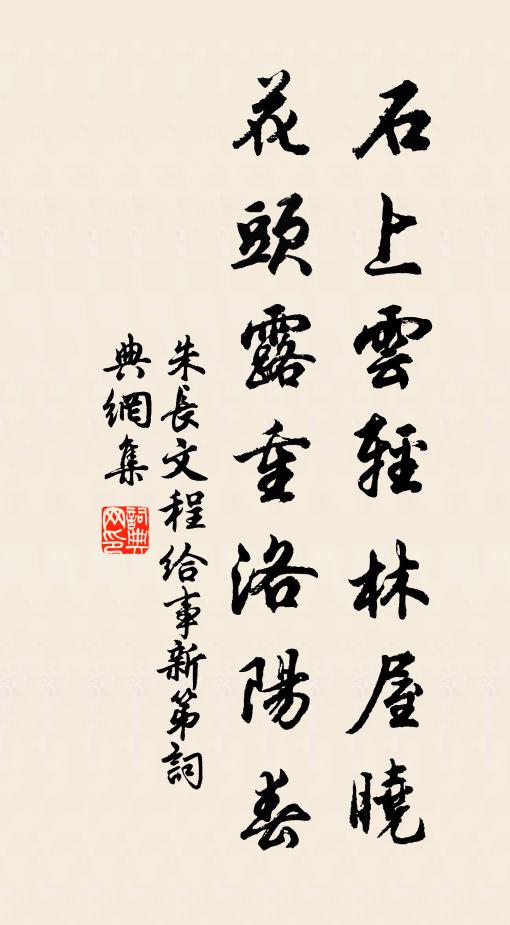 石上雲輕林屋曉
花頭露重洛陽春
朱長文程給事新第詞
典網集
詞典网印